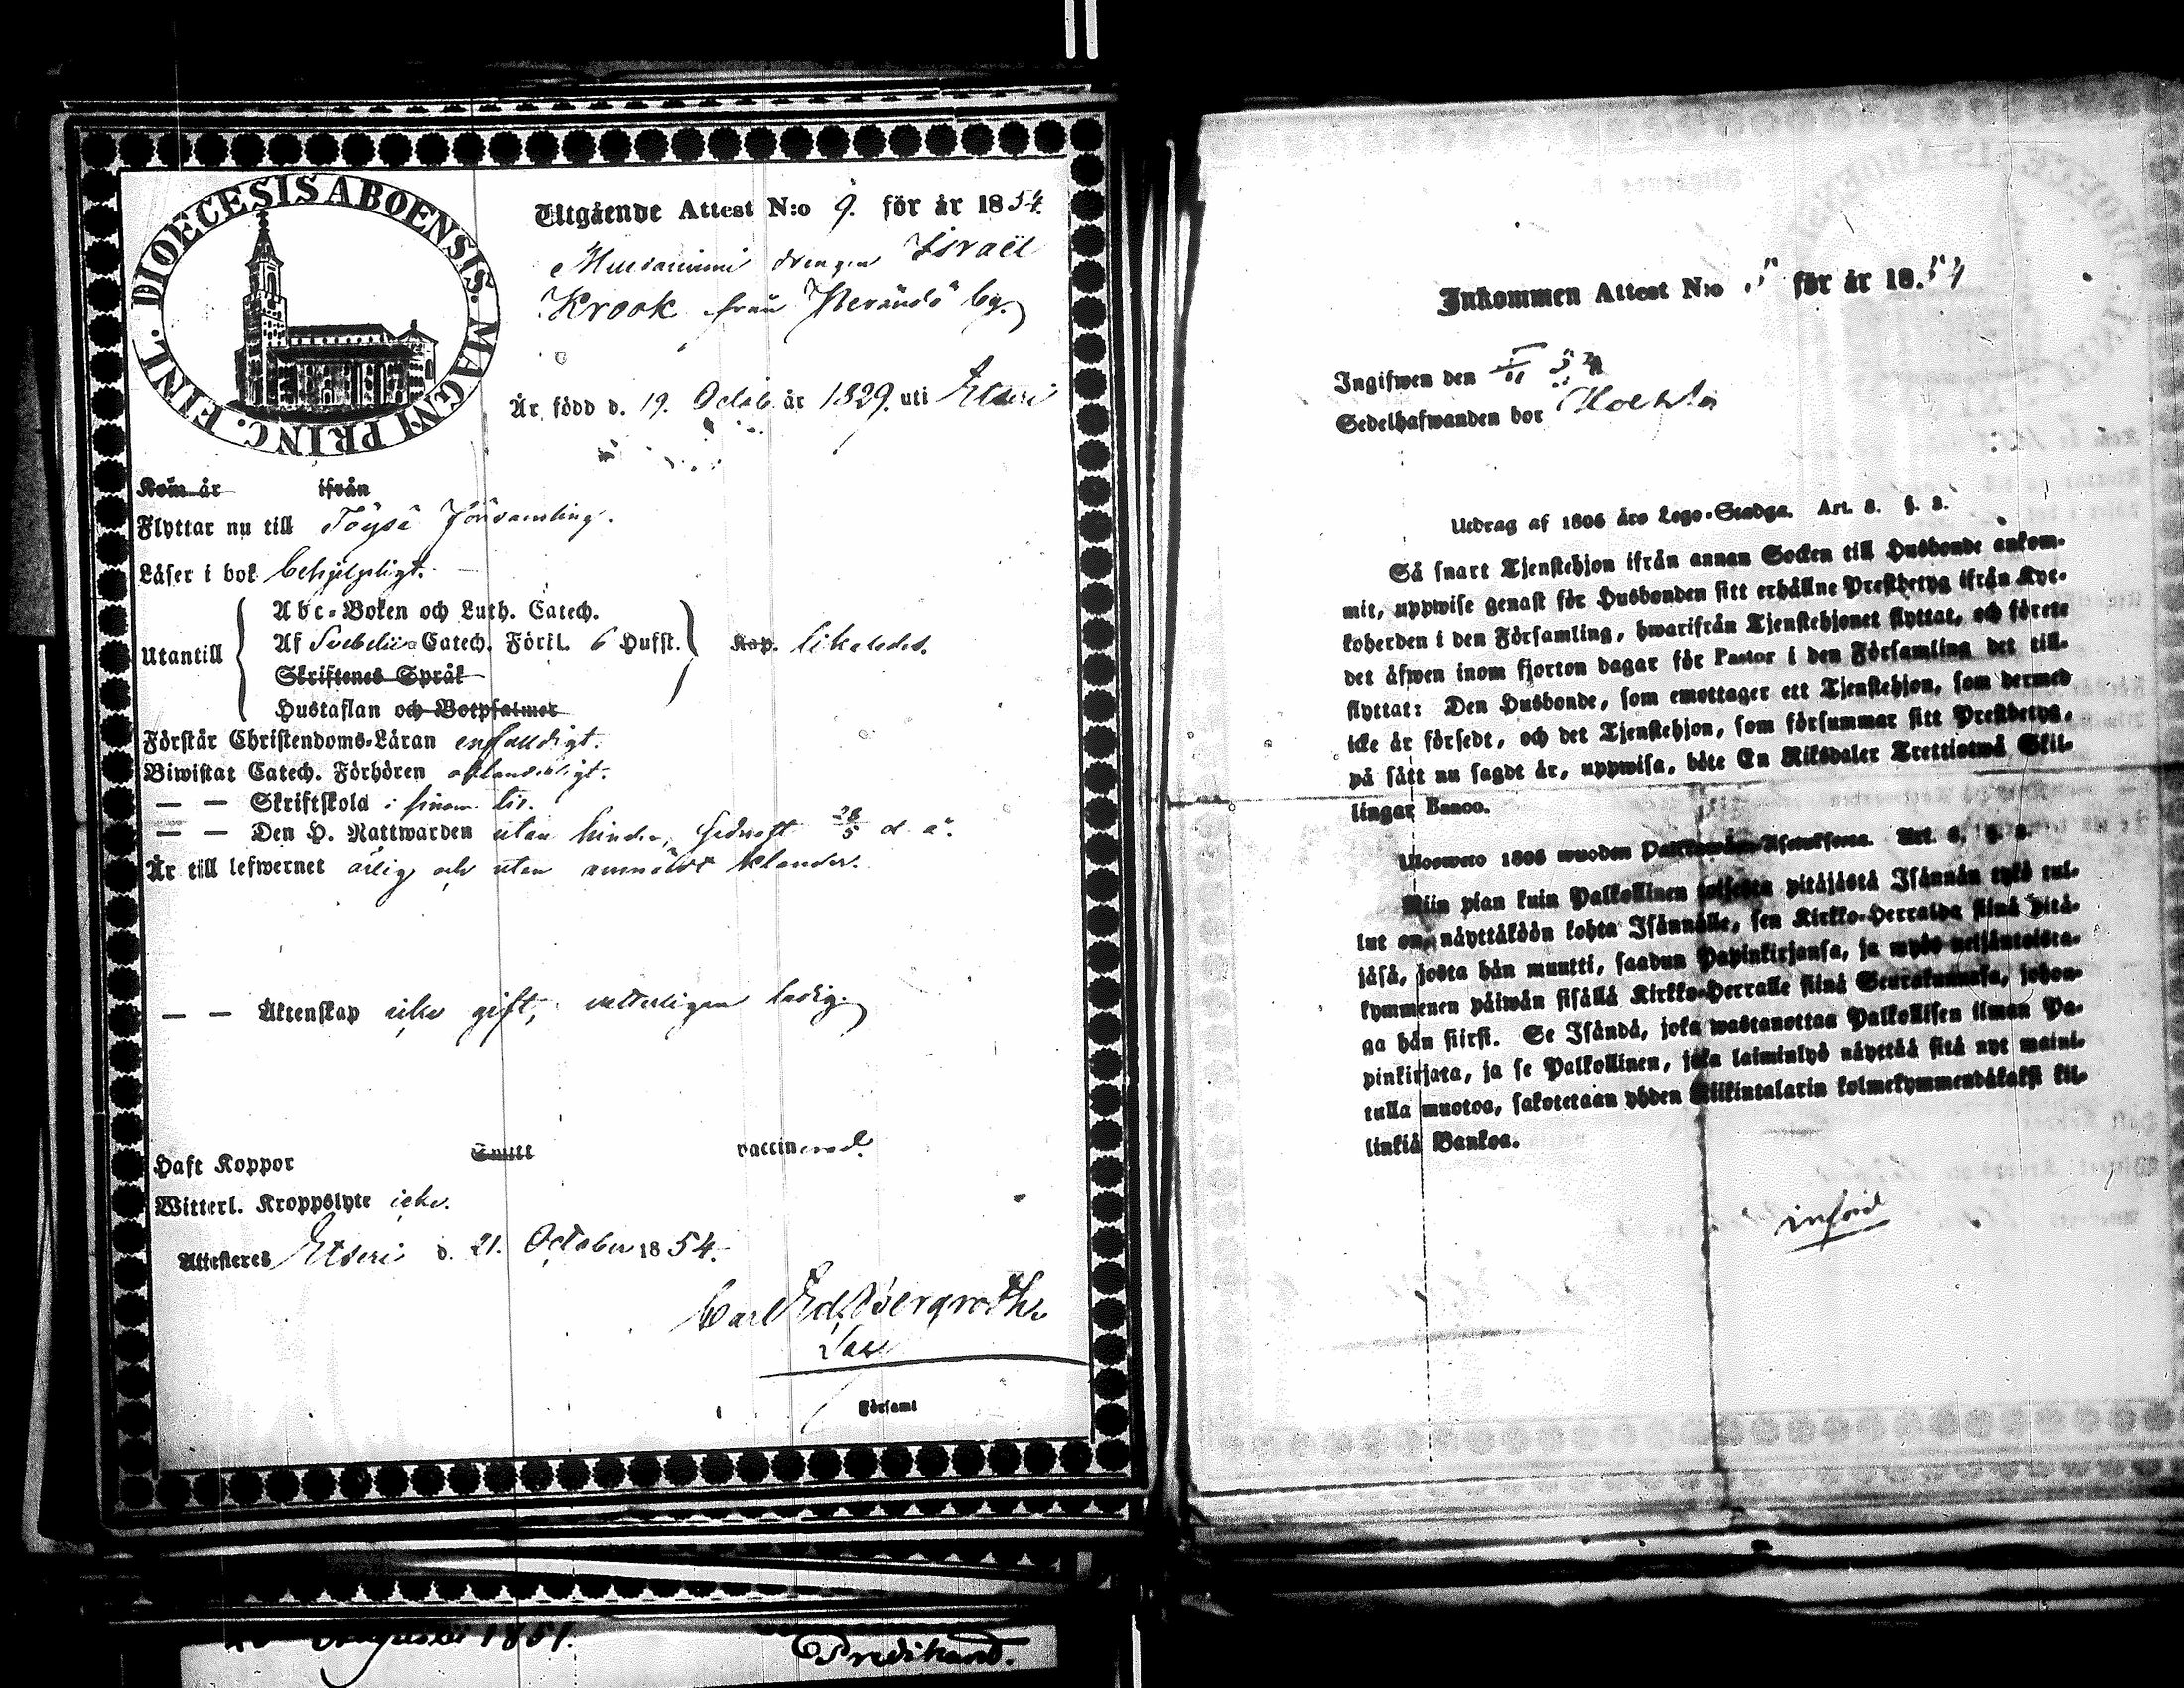 DIOECESIS ABOENSIS. MAGNI PRINC. FINL.
Utgående Attest N:o 9. för år 1854.
drengen Israël
Krook från by.
Är född d. 19. Octob. år 1829. uti Etseri
Kom år ifrån
Flyttar nu till Töysä Församling.
Läser i bok behjelpligt.
Utantill
Abc-Boken och Luth. Catech.
Af Svebelii Catech. Förkl. 6 Hufst. Kap. likaledes.
Skriftenes Språk
Hustaflan och Botpsalmer
Förstår Christendoms-Läran enfaldigt.
Biwistat Catech. Förhören oklanderligt.
— — Skriftskola i sinom tid.
— — Den H. Nattwarden utan hinder, sednast 28/5 d. å.
Är till lefwernet ärlig och utan anmäldt klander.
— — Äktenskap icke gift, vetterligen ledig.
Haft Koppor Smitt vaccinerad.
Witterl. Kroppslyte icke.
Attesteras Etseri d. 21. October 1854.
Carl Ed. Bergroth
Församl
1851.
Predikand.
Inkommen Attest N:o 5 för år 1854
Ingifwen den 5/11 54
Sedelhafwanden bor
Utdrag af 1805 års Lego-Stadga. Art. 8. §. 2.
Så snart Tjenstehjon ifrån annan Socken till Husbonde ankom-
mit, uppwise genast för Husbonden sitt erhållne Prestbetyg ifrån Kyr-
koherden i den Församling, hwarifrån Tjenstehjonet flyttat, och förete
det äfwen inom fjorton dagar för Pastor i den Församling det till-
flyttat: Den Husbonde, som emottager ett Tjenstehjon, som dermed
icke är försedt, och det Tjenstehjon, som försummar sitt Prestbetyg,
på sätt nu sagdt är, uppwisa, böte En Riksdaler Trettiotwå Skil-
lingar Banco.
Uloswetο 1805 wuoden Palkowäen-Asetuksesta. Art. 8. §. 2.
Niin pian kuin Palkollinen toisesta pitäjästä Isännän tykö tul-
lut on, näyttäköön kohta Isännälle, sen Kirkko-Herralda siinä pitä-
jäsä, josta hän muutti, saadun Papinkirjansa, ja myös neljäntoista-
kymmenen päiwän sisällä Kirkko-Herralle siinä Seurakunnasa, johon-
ga hän siirsi. Se Isändä, joka wastanottaa Palkollisen ilman Pa-
pinkirjata, ja se Palkollinen, joka laiminlyö näyttää sitä nyt maini-
tulla muotoa, sakotetaan yhden Riikintalarin kolmekymmendäkaksi kil-
linkiä Bankoa.
införd